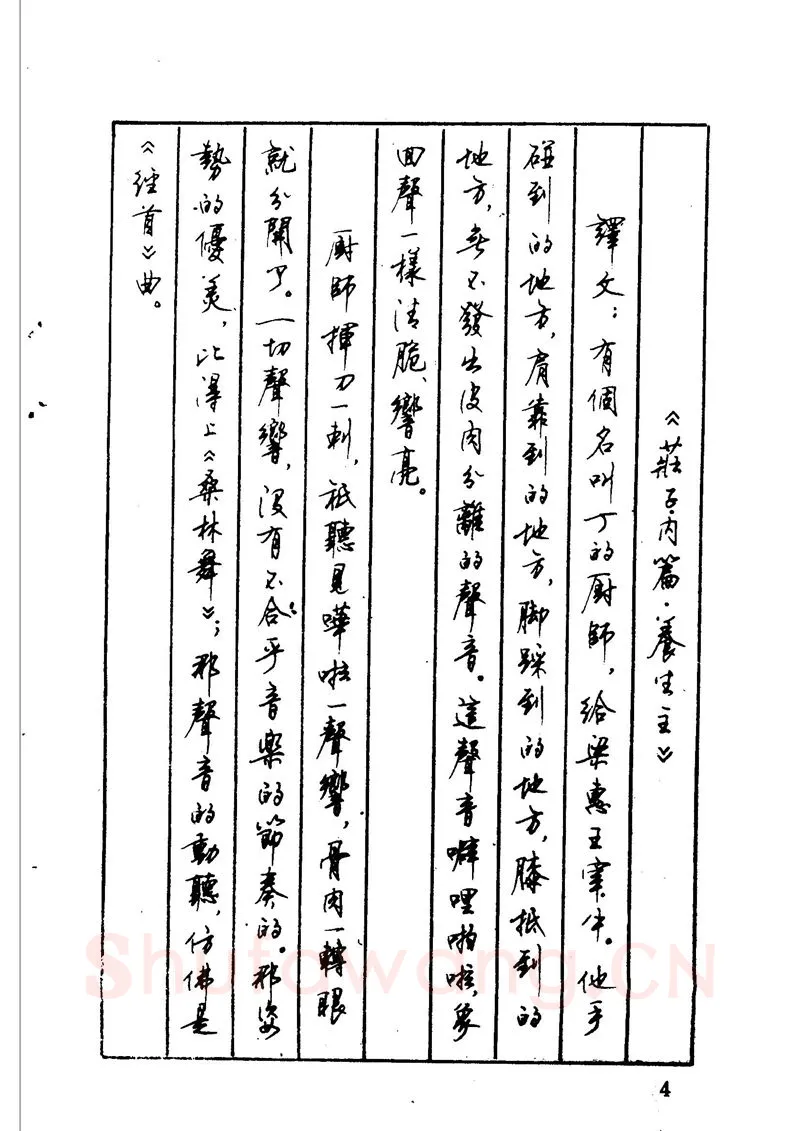 《莊子·内篇·養生主》
譯文：有個名叫丁的厨師，給梁惠王宰牛。他手
碰到的地方，肩靠到的地方，脚踩到的地方，膝抵到的
地方，無不發出皮肉分離的聲音。這聲音噼哩啪啦，象
回聲一樣清脆、響亮。
厨師揮刀一刺，祇聽見嘩啦一聲響，骨肉一轉眼
就分開了。一切聲響，没有不合乎音樂的節奏的。那姿
勢的優美，比得上《桑林舞》；那聲音的動聽，仿佛是
《經首》曲。
4
Shufawang.CN